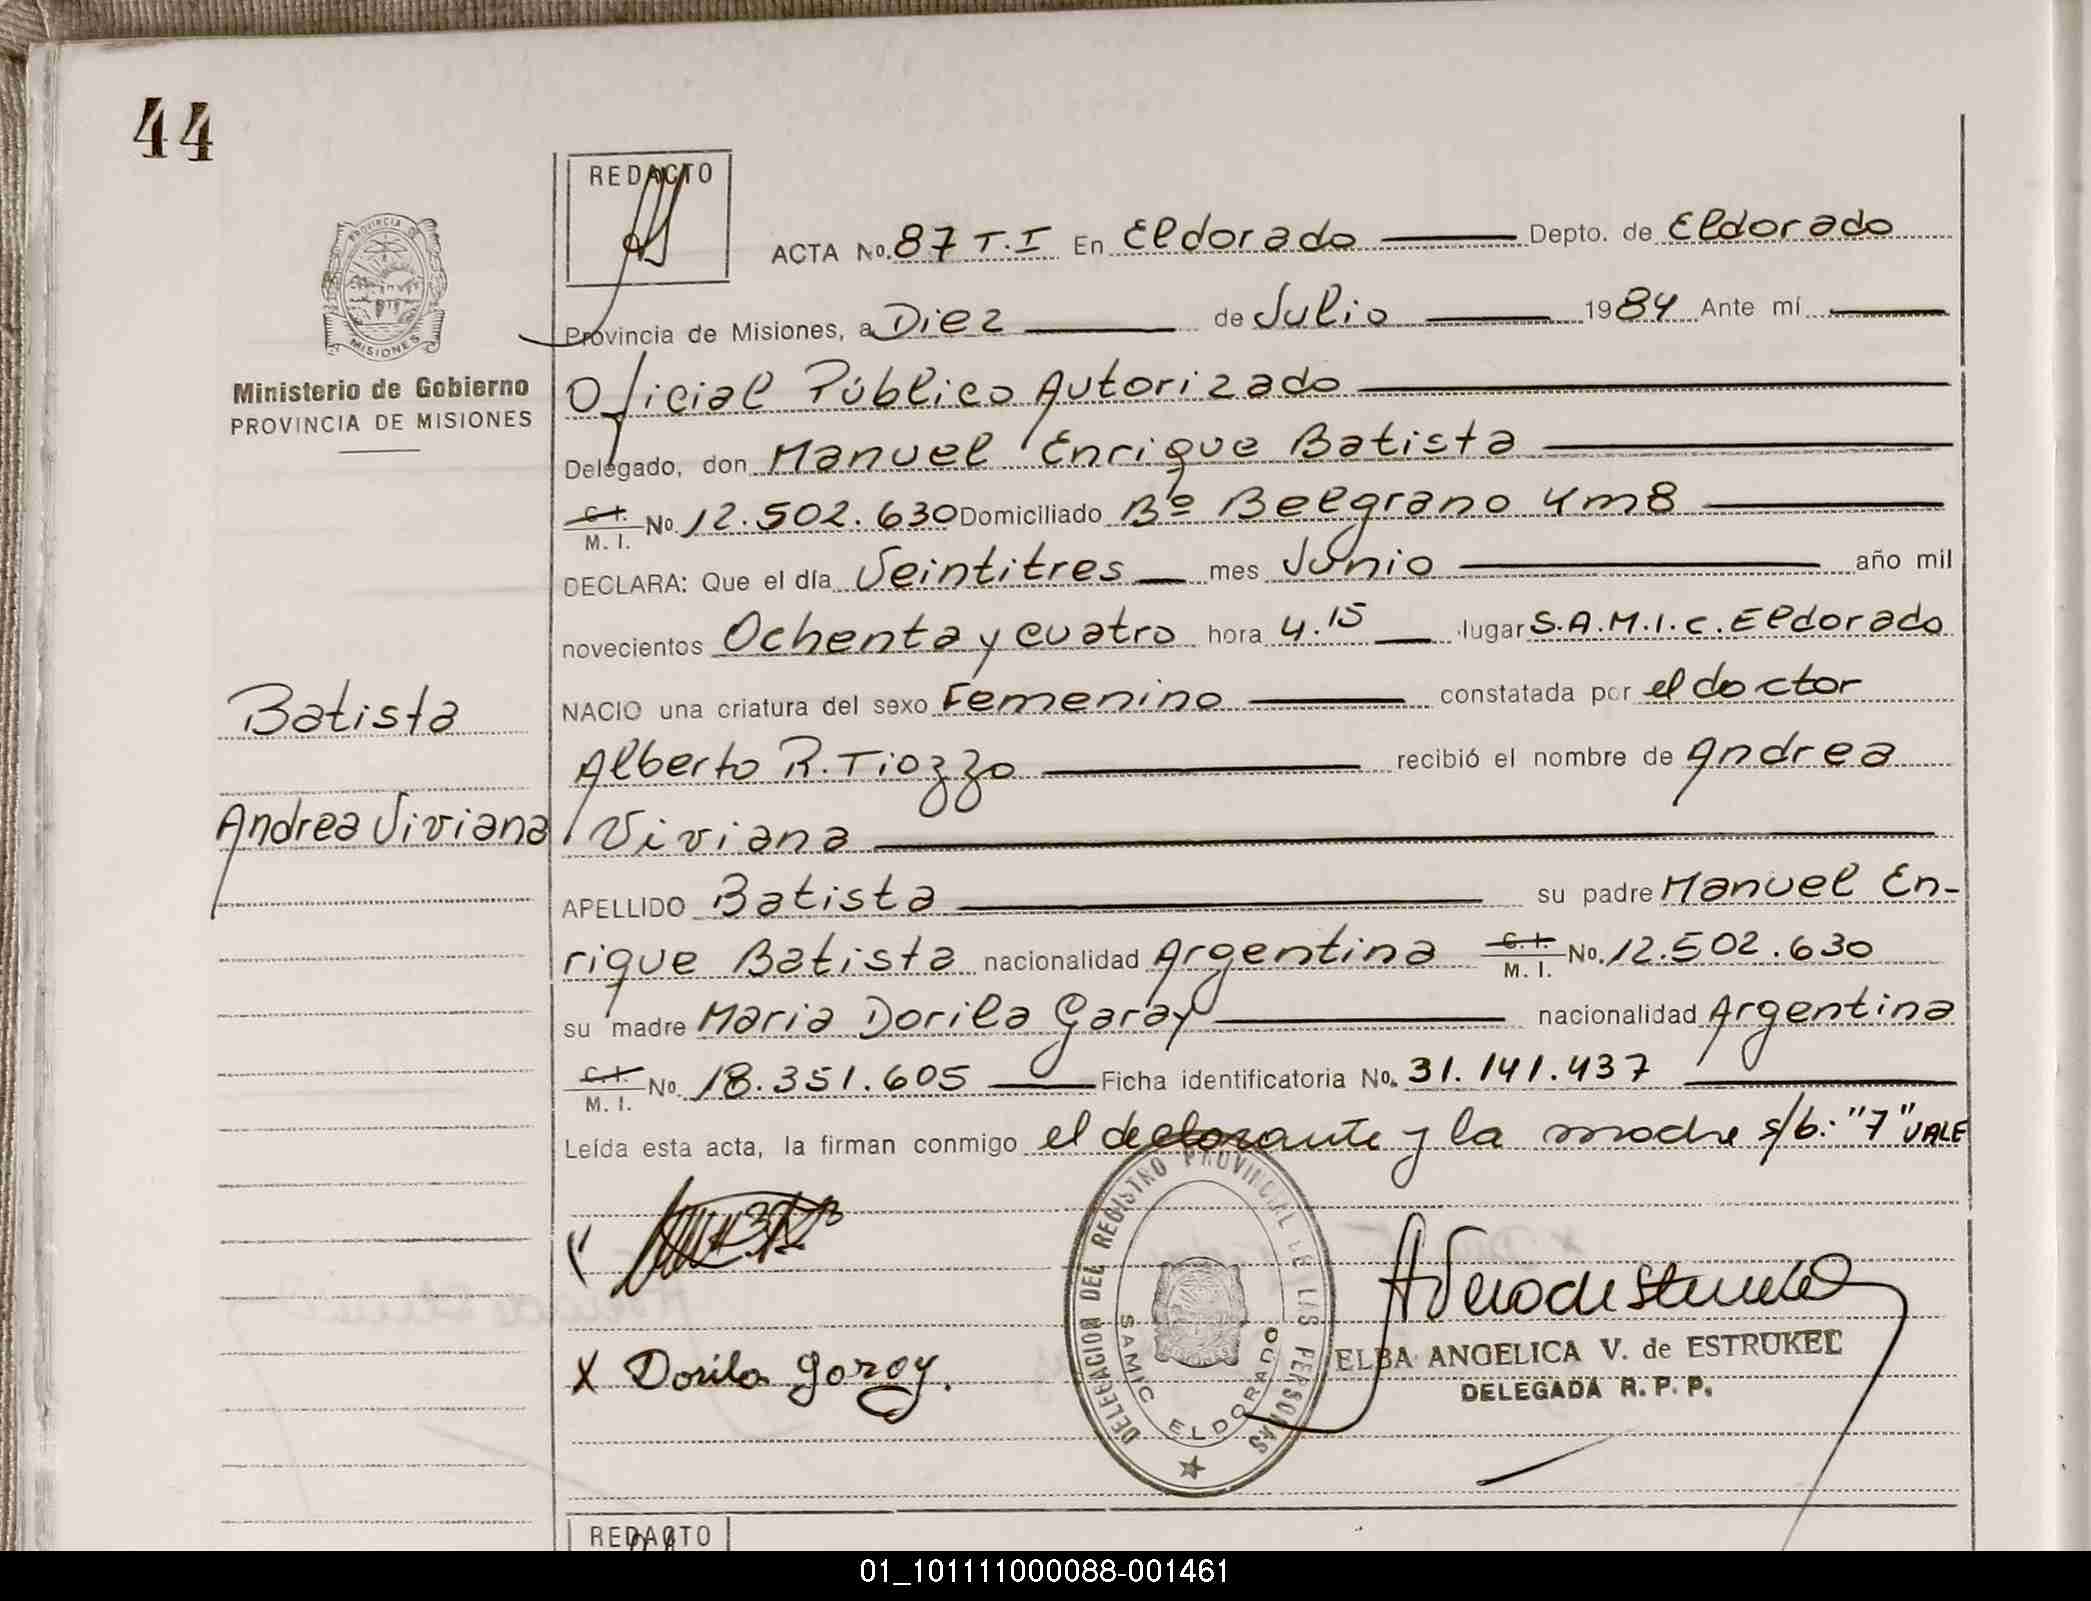 44
REDACTO
ACTA No. 87 T.I En Eldorado Depto. de Eldorado
PROVINCIA DE
MISIONES
Provincia de Misiones, a Diez de Julio 1984 Ante mí
Ministerio de Gobierno
PROVINCIA DE MISIONES
Oficial Público Autorizado
Delegado, don Manuel Enrique Batista
C.I. M. I. No. 12.502.630 Domiciliado Bº Belgrano Km8
DECLARA: Que el día Veintitres mes Junio año mil
novecientos Ochenta y cuatro hora 4.15 lugar S.A.M.I.C. Eldorado
NACIO una criatura del sexo Femenino constatada por el doctor
Batista
Alberto R. Tiozzo recibió el nombre de Andrea
Andrea Viviana
Viviana
APELLIDO Batista su padre Manuel En-
rique Batista nacionalidad Argentina C.I. M. I. No. 12.502.630
su madre Maria Dorila Garay nacionalidad Argentina
C.I. M. I. No. 18.351.605 Ficha identificatoria No. 31.141.437
Leída esta acta, la firman conmigo el declarante y la madre s/b: "7" VALE
DELEGACION DEL REGISTRO PROVINCIAL DE LAS PERSONAS
SAMIC ELDORADO
X Dorila Garay.
ELBA ANGELICA V. de ESTRUKEL
DELEGADA R. P. P.
REDACTO
01_101111000088-001461